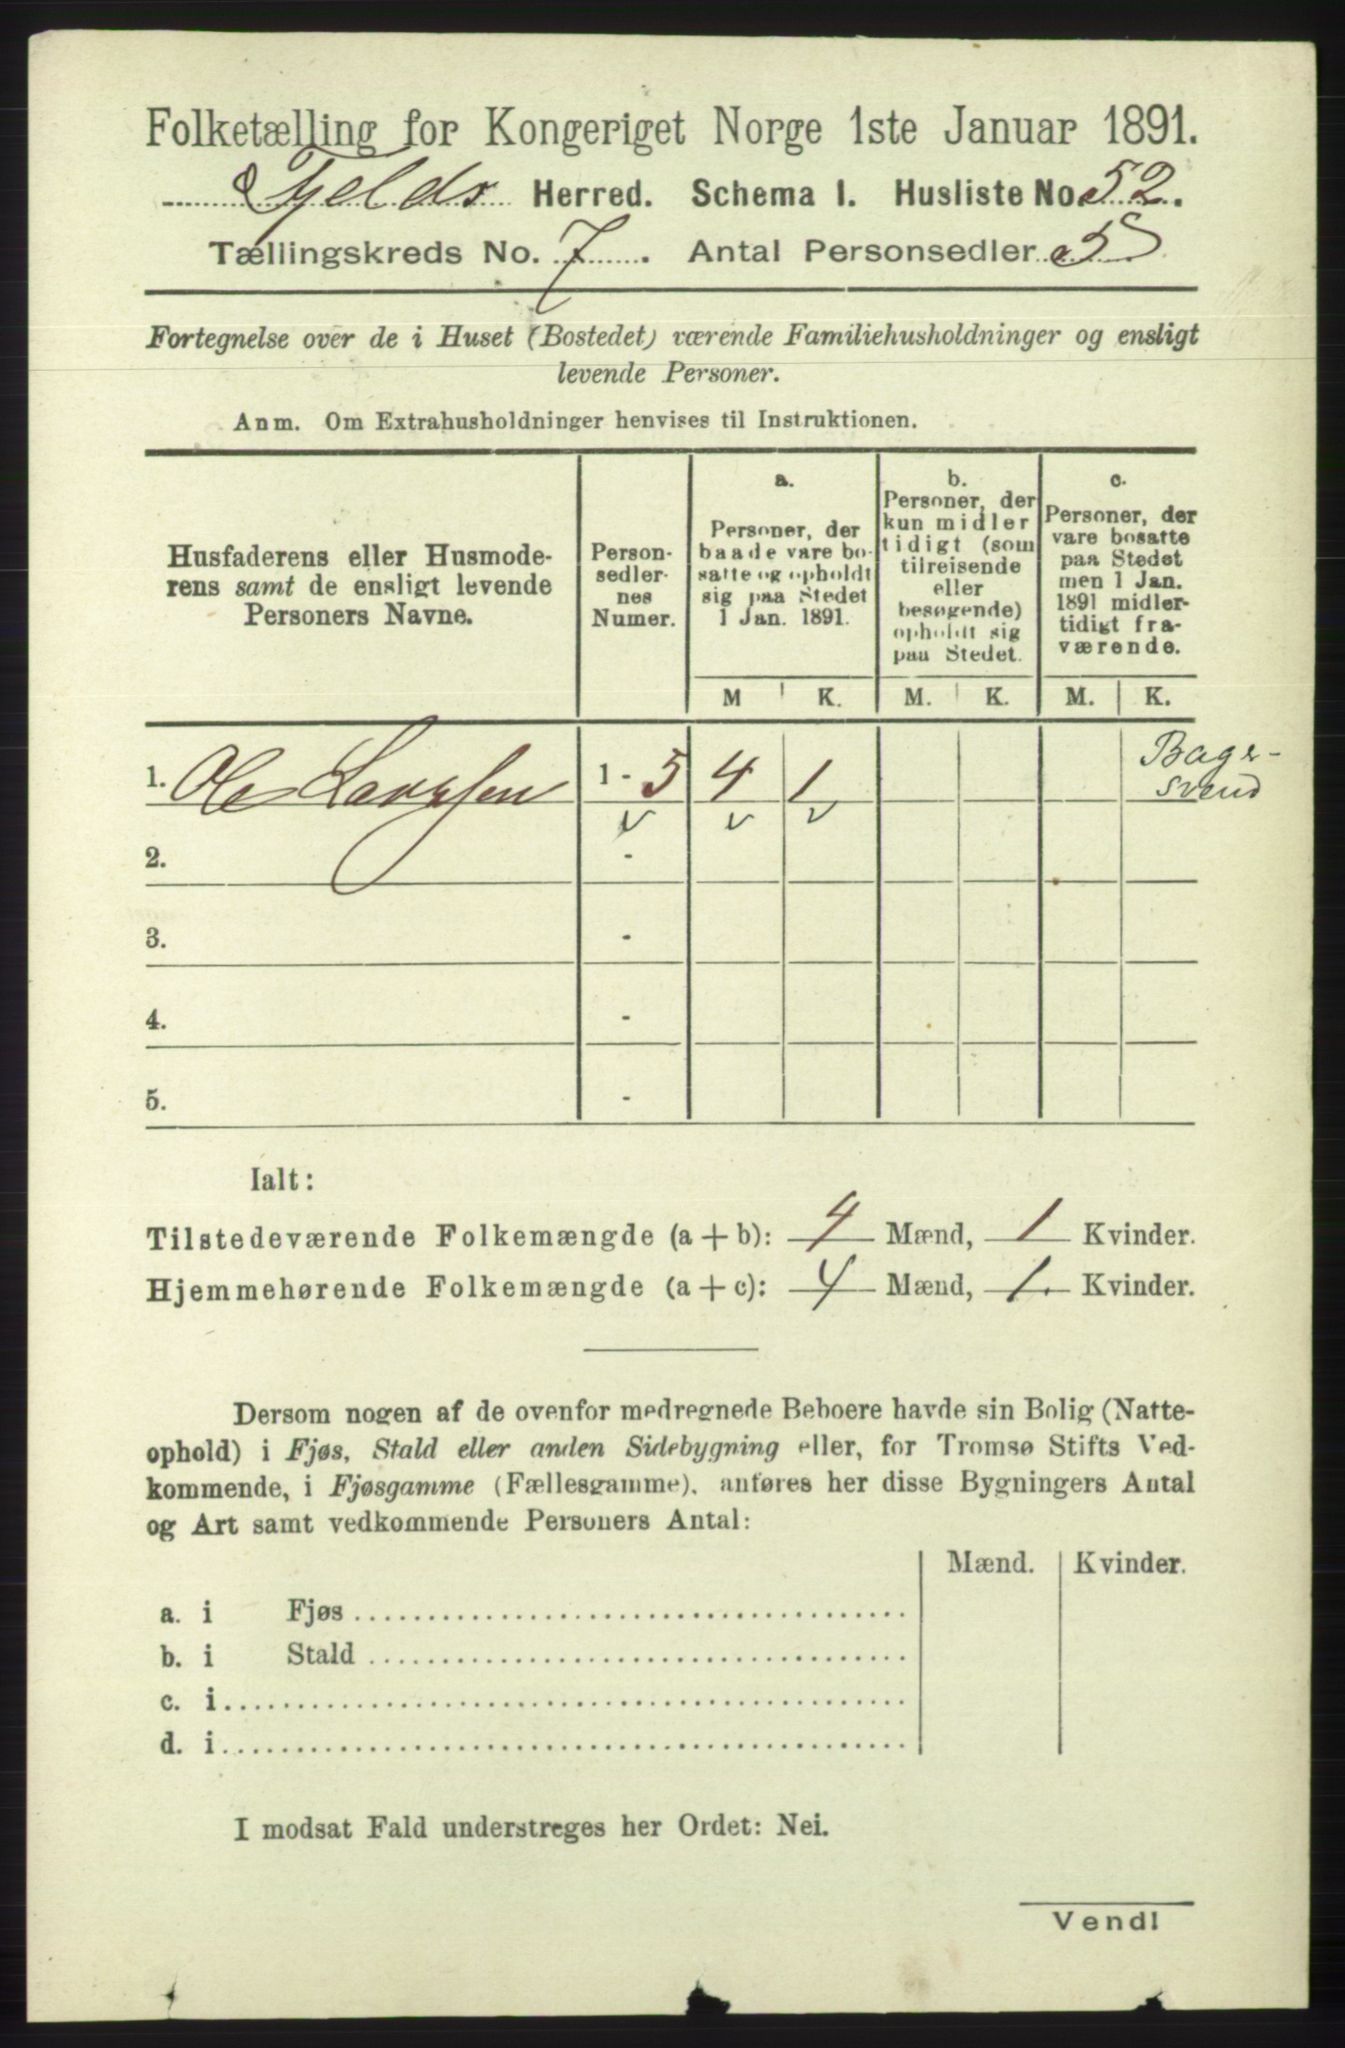 Folketælling for Kongeriget Norge 1ste Januar 1891.
Fjelds Herred. Schema 1. Husliste No. 52.
Tællingskreds No. 7. Antal Personsedler 5
Fortegnelse over de i Huset (Bostedet) værende Familiehusholdninger og ensligt
levende Personer.
Anm. Om Extrahusholdninger henvises til Instruktionen.
Husfaderens eller Husmode-
rens samt de ensligt levende
Personers Navne.
Person-
sedler-
nes
Numer.
a.
Personer, der
baade vare bo-
satte og opholdt
sig paa Stedet
1 Jan. 1891.
b.
Personer, der
kun midler
tidigt (som
tilreisende
eller
besøgende)
opholdt sig
paa Stedet.
c.
Personer, der
vare bosatte
paa Stedet
men 1 Jan.
1891 midler-
tidigt fra-
værende.
M K. M. K. M. K.
1. Ole Larssen 1 - 5 4 1 Bager-
svend
2. -
3. -
4. -
5. -
Ialt:
Tilstedeværende Folkemængde (a + b): 4 Mænd, 1 Kvinder.
Hjemmehørende Folkemængde (a + c): 4 Mænd, 1. Kvinder.
Dersom nogen af de ovenfor medregnede Beboere havde sin Bolig (Natte-
ophold) i Fjøs, Stald eller anden Sidebygning eller, for Tromsø Stifts Ved-
kommende, i Fjøsgamme (Fællesgamme), anføres her disse Bygningers Antal
og Art samt vedkommende Personers Antal:
Mænd. Kvinder.
a. i Fjøs
b. i Stald
c. i
d. i
I modsat Fald understreges her Ordet: Nei.
Vend!